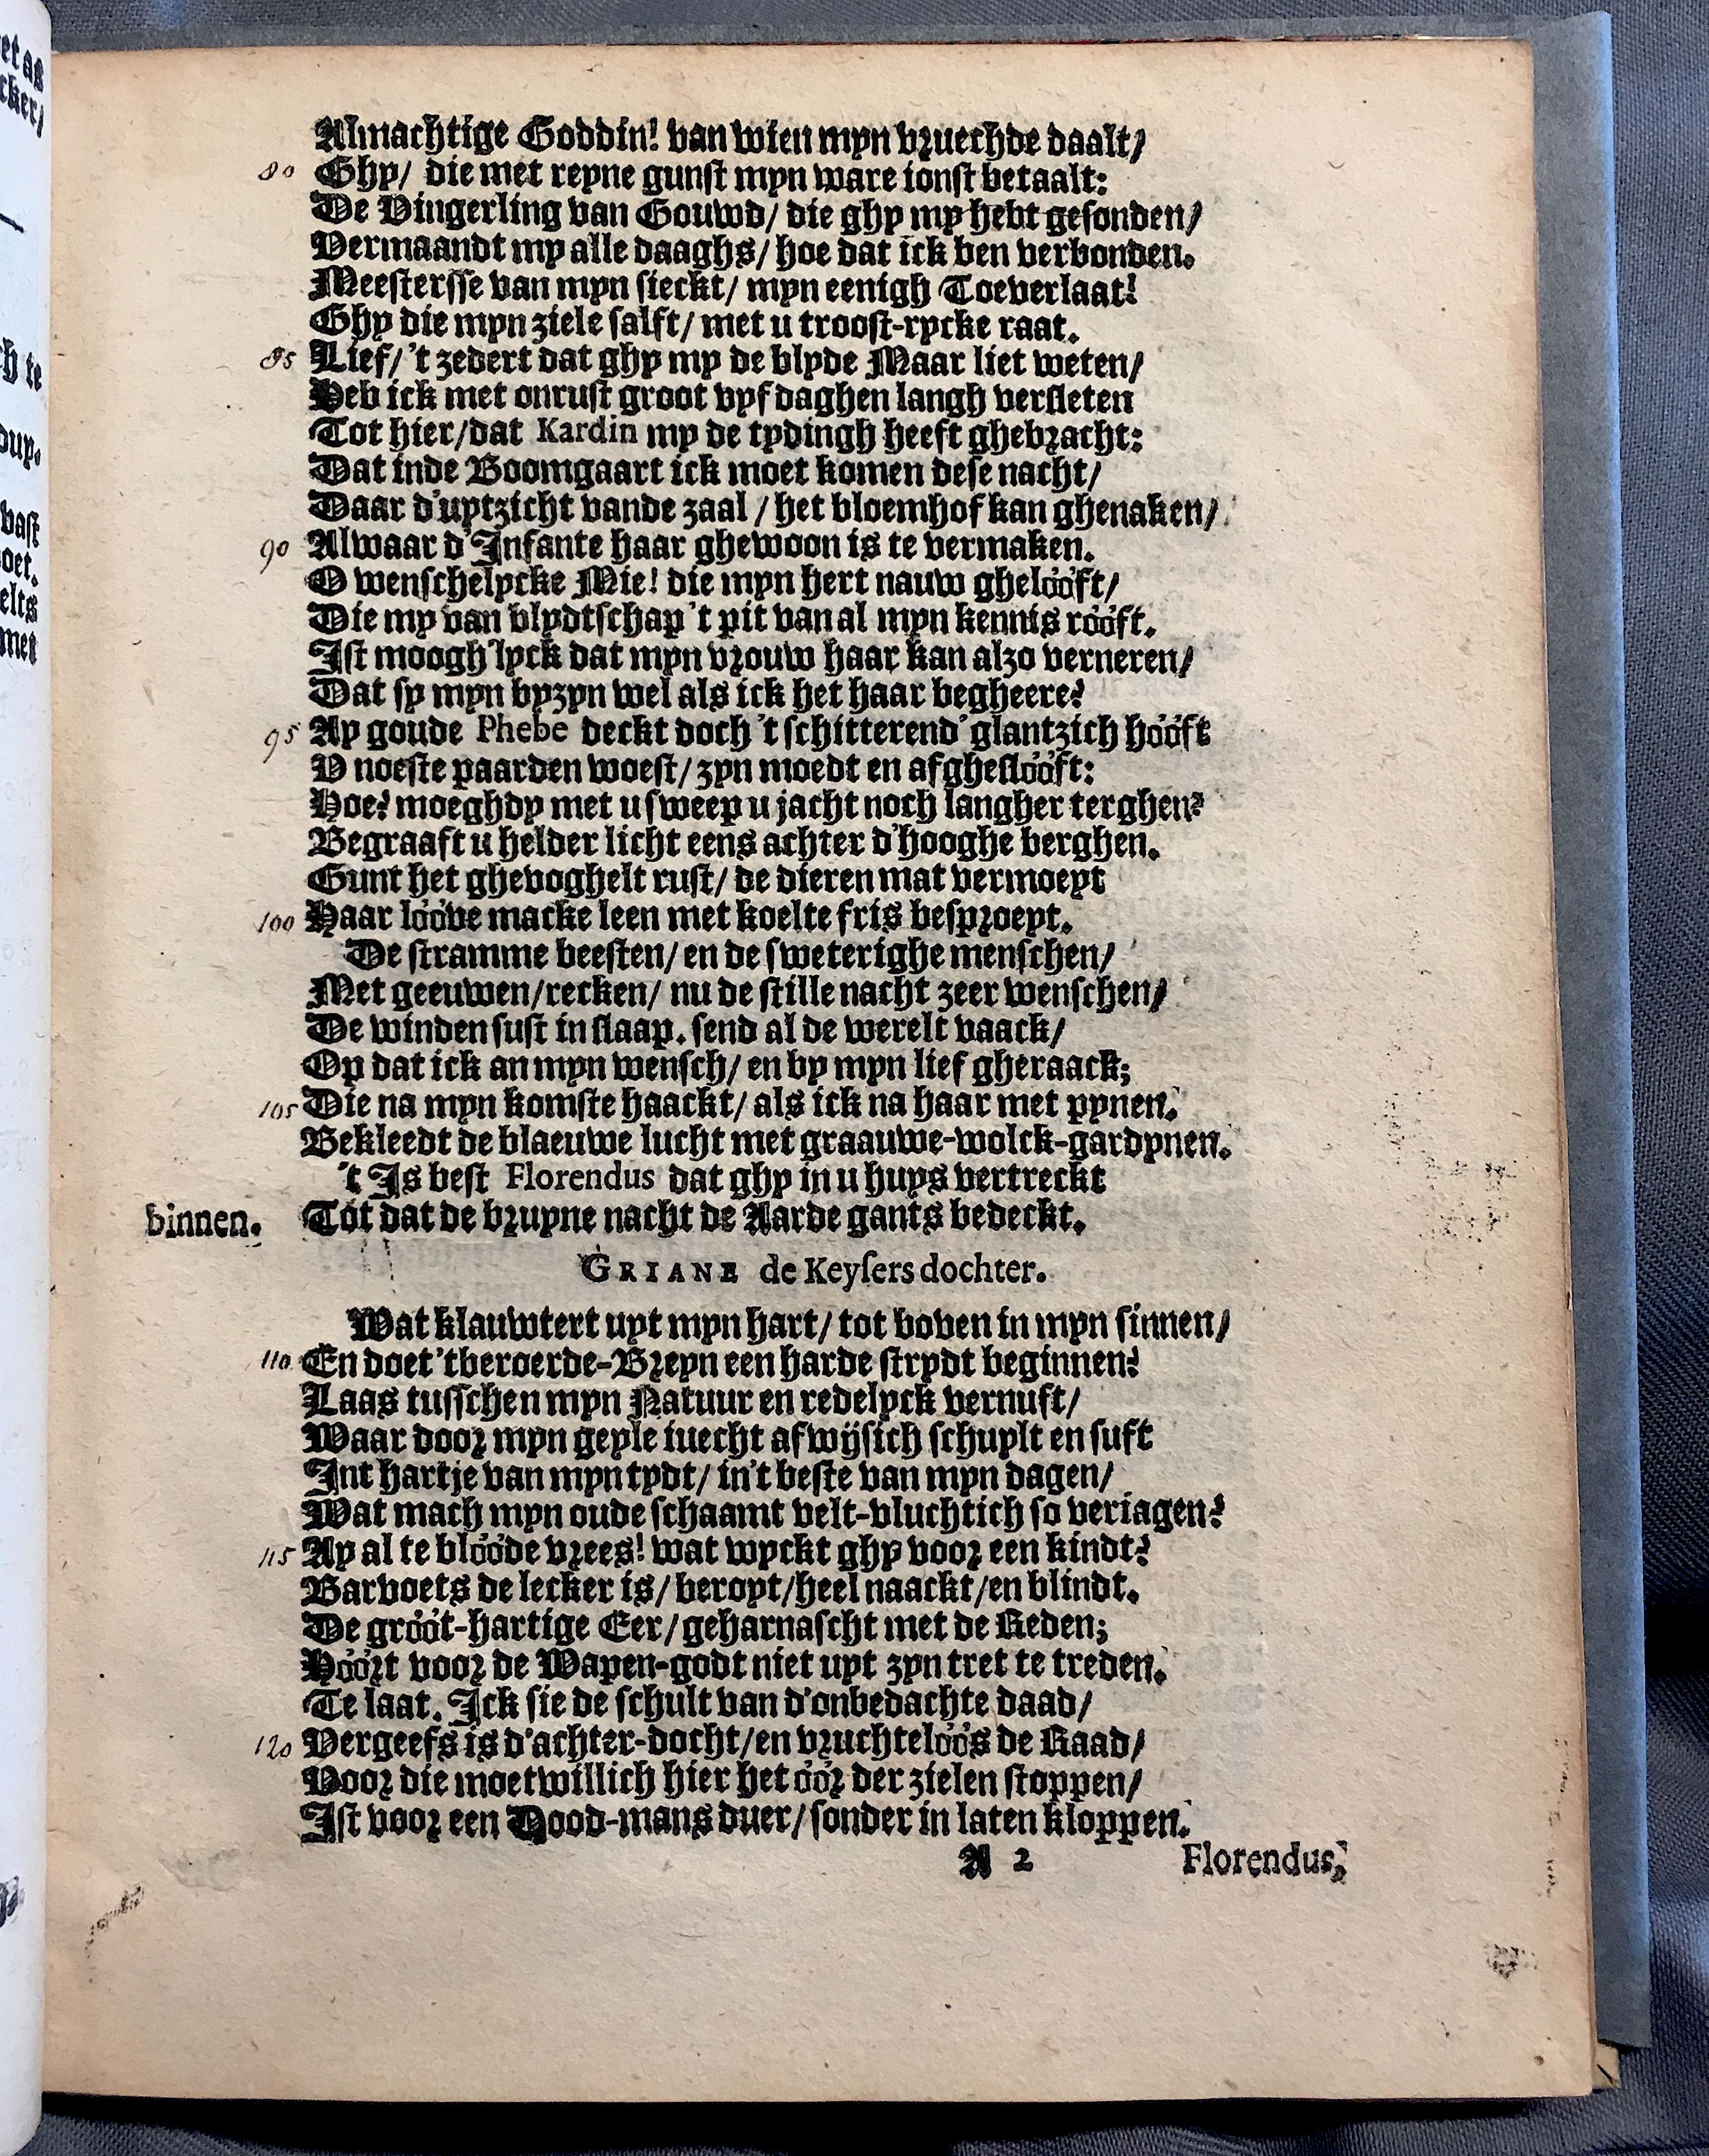 Almachtige Goddin! van wien myn vruechde daalt/
80 Ghy/ die met reyne gunst myn ware ionst betaalt:
De Vingerling van Gouwd/ die ghy my hebt gesonden/
Vermaandt my alle daaghs/ hoe dat ick ben verbonden.
Meestersse van myn sieckt/ myn eenigh Toeverlaat!
Ghy die myn ziele salft/ met u troost-rycke raat.
85 Lief/ 't zedert dat ghy my de blyde Maar liet weten/
Heb ick met onrust groot vyf daghen langh versleten
Tot hier/dat Kardin my de tydingh heeft ghebracht:
Dat inde Boomgaart ick moet komen dese nacht/
Daar d'uytzicht vande zaal / het bloemhof kan ghenaken/
90 Alwaar d'Infante haar ghewoon is te vermaken.
O wenschelycke Mie! die myn hert nauw ghelóóft/
Die my van blydtschap 't pit van al myn kennis róóft.
Ist moogh'lyck dat myn vrouw haar kan alzo verneren/
Dat sy myn byzyn wel als ick het haar begheere?
95 Ay goude Phebe deckt doch 't schitterend' glantzich hóóft
V noeste paarden woest/ zyn moedt en afgheslóóft:
Hoe? moeghdy met u sweep u jacht noch langher terghen?
Begraaft u helder licht eens achter d'hooghe berghen.
Gunt het ghevoghelt rust/ de dieren mat vermoeyt
100 Haar lóóve macke leen met koelte fris besproeyt.
De stramme beesten/ en de sweterighe menschen/
Met geeuwen/recken/ nu de stille nacht zeer wenschen/
De winden sust in slaap. send al de werelt vaack/
Op dat ick an myn wensch/ en by myn lief gheraack;
105 Die na myn komste haackt/ als ick na haar met pynen.
Bekleedt de blaeuwe lucht met graauwe-wolck-gardynen.
't Is best Florendus dat ghy in u huys vertreckt
binnen. Tot dat de bruyne nacht de Aarde gants bedeckt.
GRIANE de Keysers dochter.
Wat klauwtert uyt myn hart/ tot boven in myn sinnen/
110 En doet 'tberoerde-Breyn een harde strydt beginnen?
Laas tusschen myn Natuur en redelyck vernuft/
Waar door myn geyle iuecht afwijsich schuylt en suft
Int hartje van myn tydt/ in't beste van myn dagen/
Wat mach myn oude schaamt velt-vluchtich so veriagen?
115 Ay al te blóóde vrees! wat wyckt ghy voor een kindt?
Barvoets de lecker is/ beroyt/heel naackt/en blindt.
De gróót-hartige Eer/ geharnascht met de Reden;
Hóórt voor de Wapen-godt niet uyt zyn tret te treden.
Te laat. Ick sie de schult van d'onbedachte daad/
120 Vergeefs is d'achter-docht/en vruchtelóós de Raad/
Voor die moetwillich hier het óór der zielen stoppen/
Ist voor een Dood-mans duer/ sonder in laten kloppen.
A 2 Florendus,